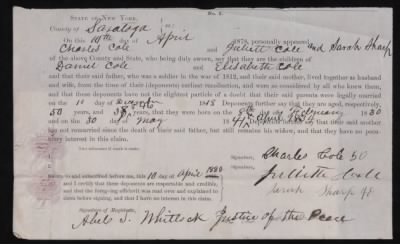 No. 4.
STATE OF NEW YORK,
County of Saratoga } ss:
On this 10th day of April 1878, personally appeared
Charles Cole Juliett Cole and Sarah Sharp
of the above County and State, who being duly sworn, say that they are the children of
Daniel Cole and Elisabeth Cole
and that their said father, who was a soldier in the war of 1812, and their said mother, lived together as husband
and wife, from the time of their (deponents) earliest recollection, and were so considered by all who knew them,
and that these deponents have not the slightest particle of a doubt that their said parents were legally married
on the 10 day of 1818 Deponents further say that they are aged, respectively,
50 years, and years, that they were born on the 8th day of February 1830
and on the 30 of May April said mother
has not remarried since the death of their said father, but still remains his widow, and that they have no pecu-
niary interest in this claim.
Signature, Charles Cole 50
Signature, Juliette Cole
Sarah Sharp
Sworn to and subscribed before me, this 10 day of April 1880
and I certify that these deponents are responsible and credible,
and that the foregoing affidavit was read and explained to
them before signing, and that I have no interest in this claim.
Signature of Magistrate,
Abel S. Whitlock Justice of the Peace